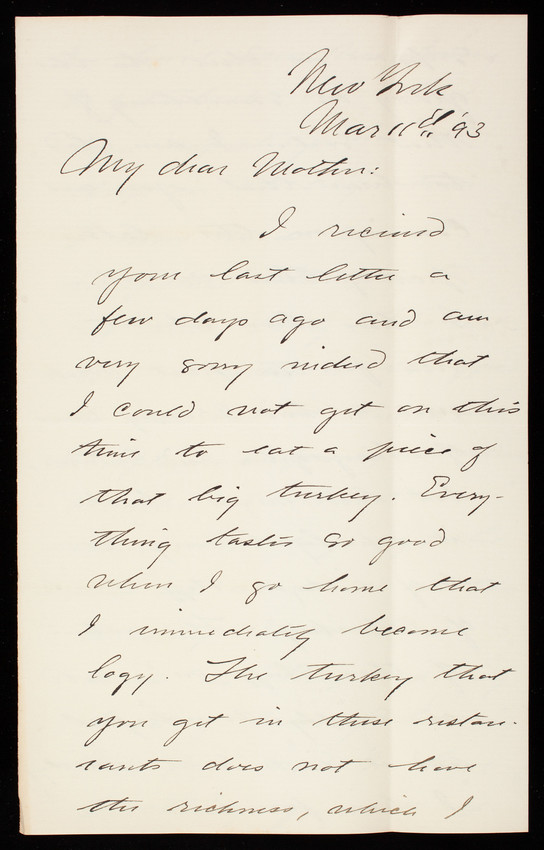 New York
Mar 11th '93
My dear Mother:
I recieved
your last letter a
few days ago and am
very sorry indeed that
I could not get on this
time to eat a piece of
that big turkey. Every-
thing tastes so good
when I go home that
I immediately become
logy. The turkey that
you get in these restau-
rants does not have
the richness, which I